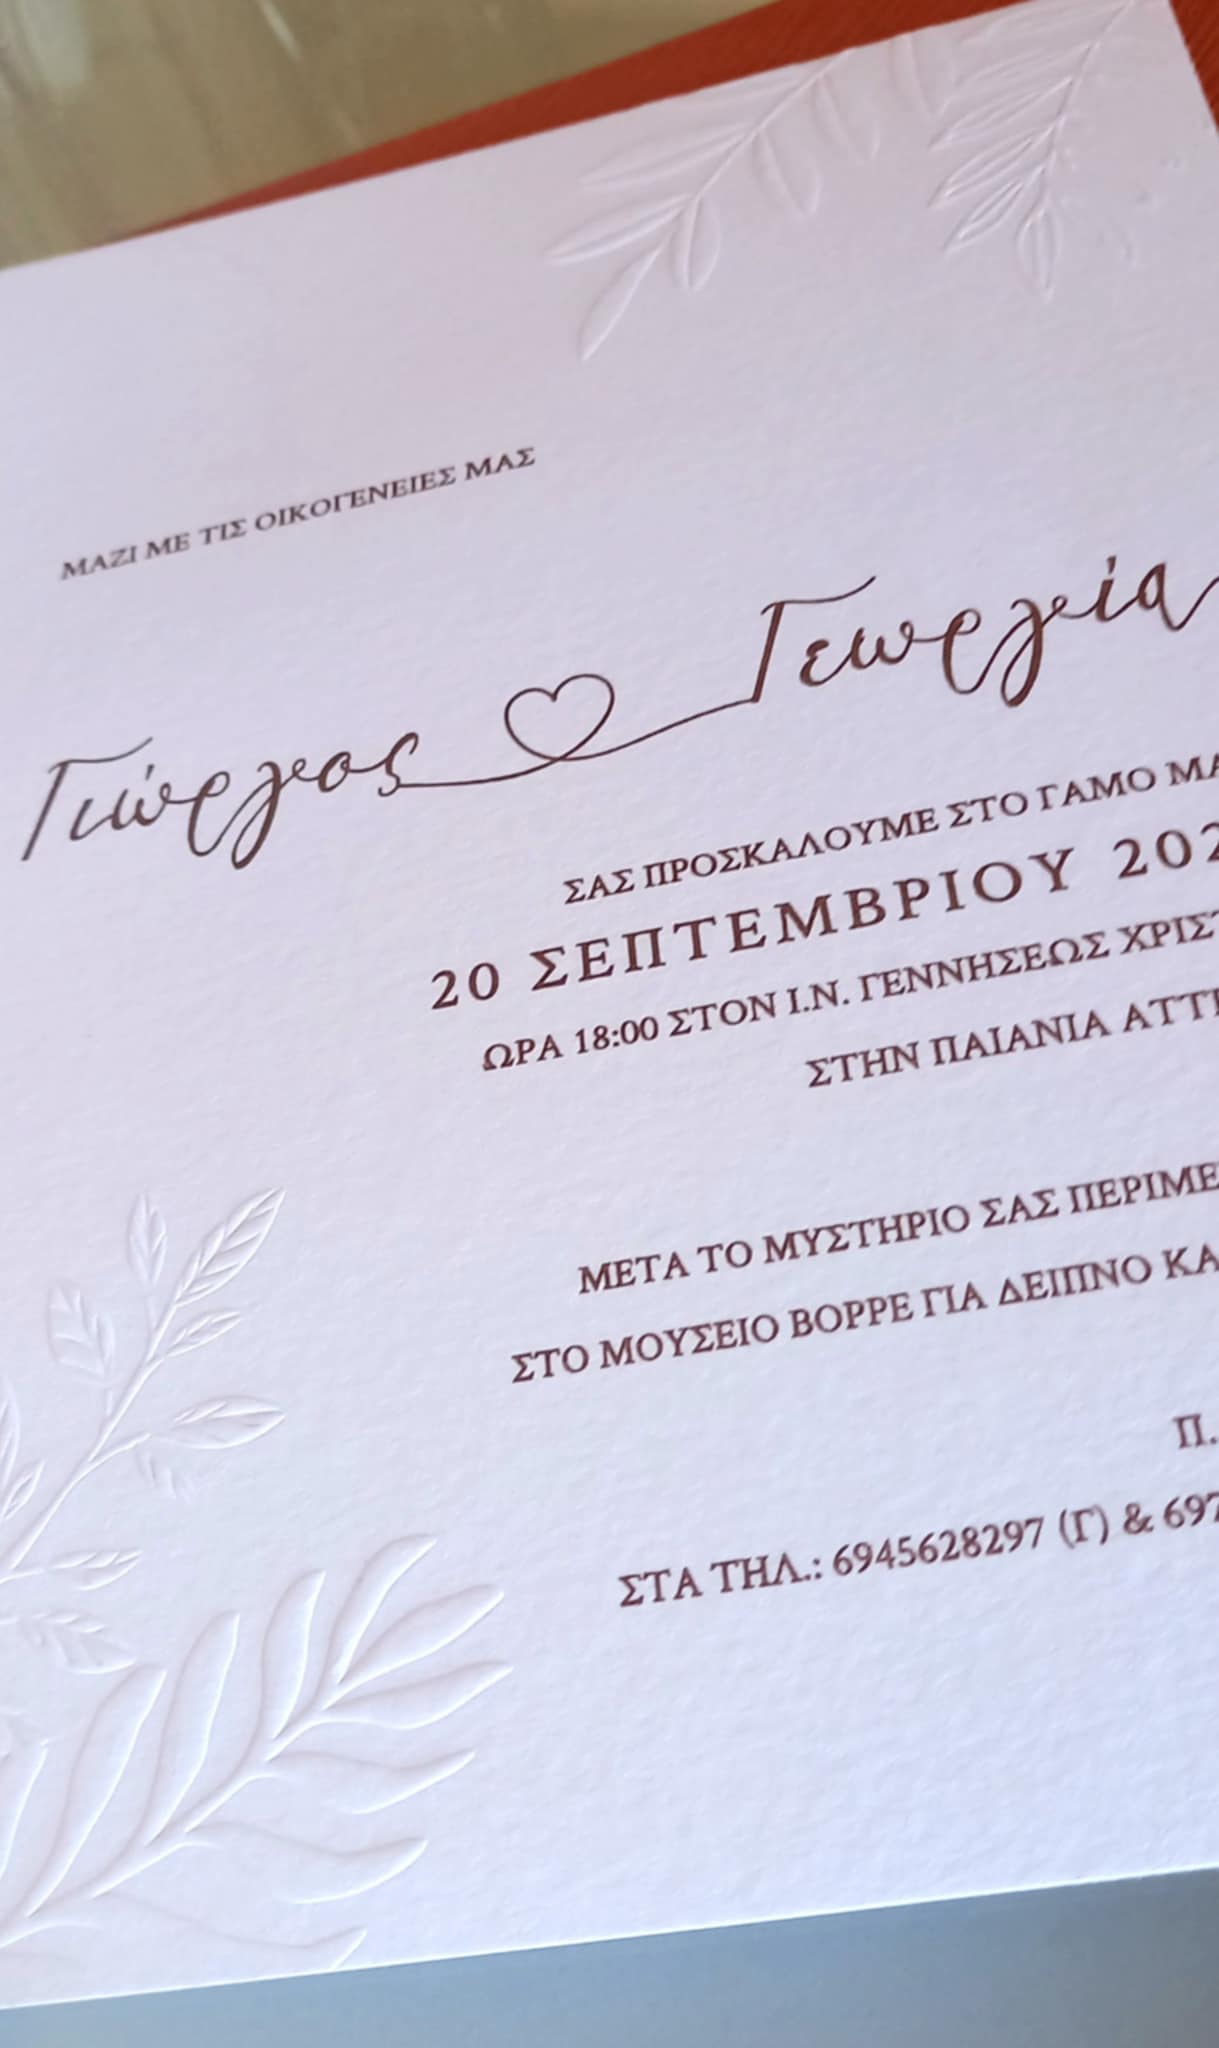 ΜΑΖΙ ΜΕ ΤΙΣ ΟΙΚΟΓΕΝΕΙΕΣ ΜΑΣ
Γιώργος Γεωργία
ΣΑΣ ΠΡΟΣΚΑΛΟΥΜΕ ΣΤΟ ΓΑΜΟ ΜΑ
20 ΣΕΠΤΕΜΒΡΙΟΥ 202
ΩΡΑ 18:00 ΣΤΟΝ Ι.Ν. ΓΕΝΝΗΣΕΩΣ ΧΡΙΣΤ
ΣΤΗΝ ΠΑΙΑΝΙΑ ΑΤΤΙ
ΜΕΤΑ ΤΟ ΜΥΣΤΗΡΙΟ ΣΑΣ ΠΕΡΙΜΕ
ΣΤΟ ΜΟΥΣΕΙΟ ΒΟΡΡΕ ΓΙΑ ΔΕΙΠΝΟ ΚΑ
Π.
ΣΤΑ ΤΗΛ.: 6945628297 (Γ) & 697